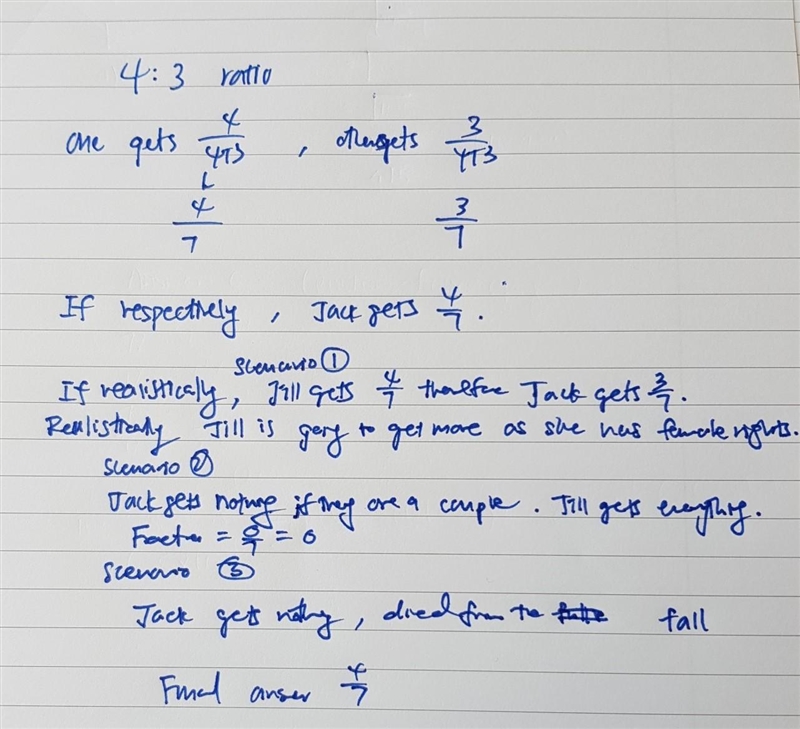 4:3 ratio
One gets 4/4+3, other gets 3/4+3
4/7 3/7
If respectively, Jack gets 4/7.
Scenario ①
If realistically, Jill gets 4/7 therefore Jack gets 3/7.
Realistically Jill is going to get more as she has female rights.
Scenario ②
Jack gets nothing if they are a couple. Jill gets everything.
Fraction = 0/7 = 0
Scenario ③
Jack gets nothing, died from the fall
Final answer 4/7